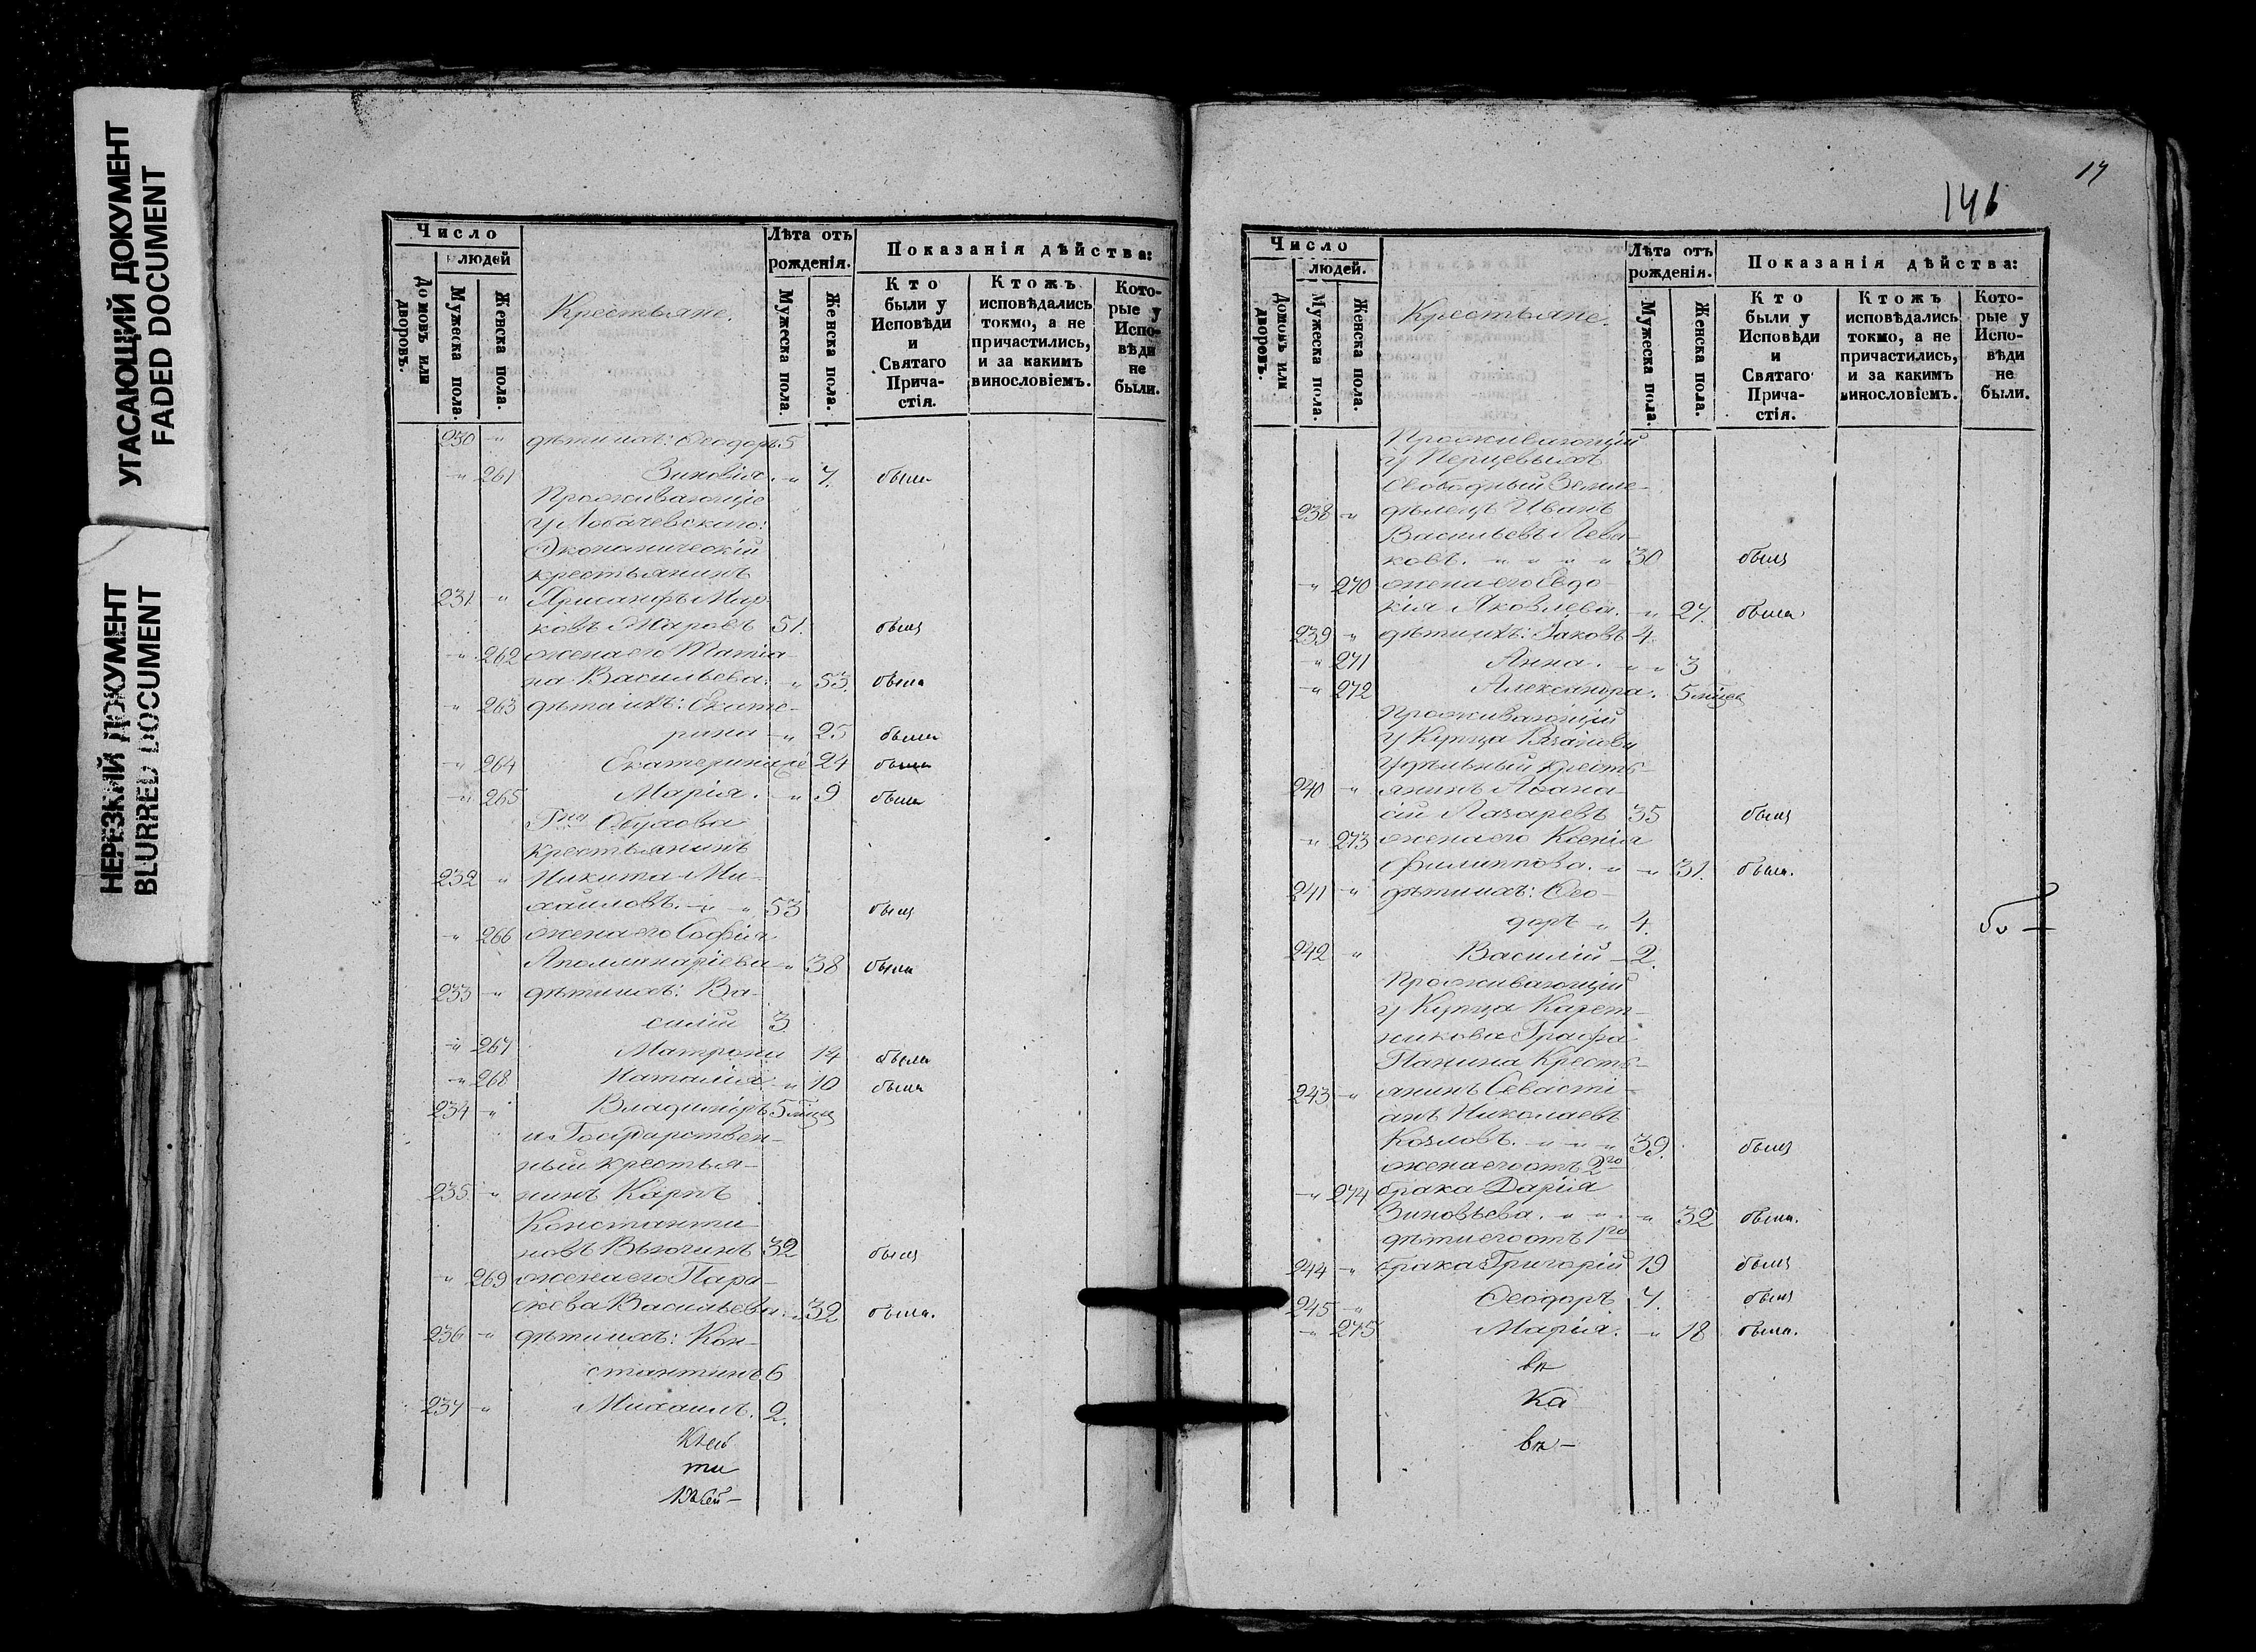 УГАСАЮЩИЙ ДОКУМЕНТ
FADED DOCUMENT
НЕРЕЗКИЙ ДОКУМЕНТ
BLURRED DOCUMENT
Число
людей
Домовъ или дворовъ.
Мужеска пола.
Женска пола.
Крестьяне.
Лѣта отъ рожденія.
Мужеска пола.
Женска пола.
Показанія дѣйства:
Кто были у Исповѣди и Святаго Прича-стія.
Ктожъ исповѣдались токмо, а не причастились, и за какимъ винословіемъ.
Кото-рые у Испо-вѣди не были.
230 " дѣти ихъ: Ѳеодоръ 5
" 261 Зиновія " 7. была
Проживающіе
у Лобачевскаго:
Экономическій
крестьянинъ
231 "
ковъ 51. былъ
" 262 жена его Татіа-
на Васильева. " 53. была
" 263 дѣти ихъ: Екате-
рина " 25 была
" 264 Екатерина 24 была
" 265 Марія. " 9 была
Крестьянинъ
232 " Никита Ми-
хаиловъ. " " 53 былъ
" 266 жена его Софія
Аполлинаріева " 38 была
233 " дѣти ихъ: Ва-
силій 3
" 267 Матрона 14 была
" 268 Наталія " 10 была
234 " Владиміръ 5
Государствен-
ный крестья-
235. " нинъ Карпъ
Константи-
новъ 32 былъ
" 269 жена его Пара-
скева Васильева. " 32 была.
236 " дѣти ихъ: Кон-
стантинъ 6
237 " Михаилъ. 2.
17
146
Число
людей.
Домовъ или дворовъ.
Мужеска пола.
Женска пола.
Крестьяне.
Лѣта отъ рожденія.
Мужеска пола.
Женска пола.
Показанія дѣйства:
Кто были у Исповѣди и Святаго Прича-стія.
Ктожъ исповѣдались токмо, а не причастились, и за какимъ винословіемъ.
Кото-рые у Испо-вѣди не были.
Проживающій
у Перцевыхъ
Свободный Земле-
238 " дѣлецъ Иванъ
Васильевъ Лева-
ковъ. " " " " 30 былъ
" 270 жена его Евдо-
кія Яковлева. " 27. была
239 " дѣти ихъ: Іаковъ 4.
" 271 Анна. " " 3
" 272 Александра. 5
Проживающій
у Купца
Удѣльный кресть-
240 " янинъ Аѳана-
сій Лазаревъ 35 былъ
" 273 жена его Ксенія
Филиппова. " " 31. была.
241 " дѣти ихъ: Ѳео-
доръ " 4.
242 " Василій 2.
Проживающій
у Купца Карет-
никова Графа
Панина Кресть-
243 " янинъ Севасті-
анъ Николаевъ
Козловъ. " " " 39. былъ
жена его отъ 2го
" 274 брака Дарія
Зиновьева. " " " 32 была.
дѣти его отъ 1го
244 " брака Григорій 19 былъ
245 " Ѳеодоръ 7. былъ
" 275 Марія. " 18 была.